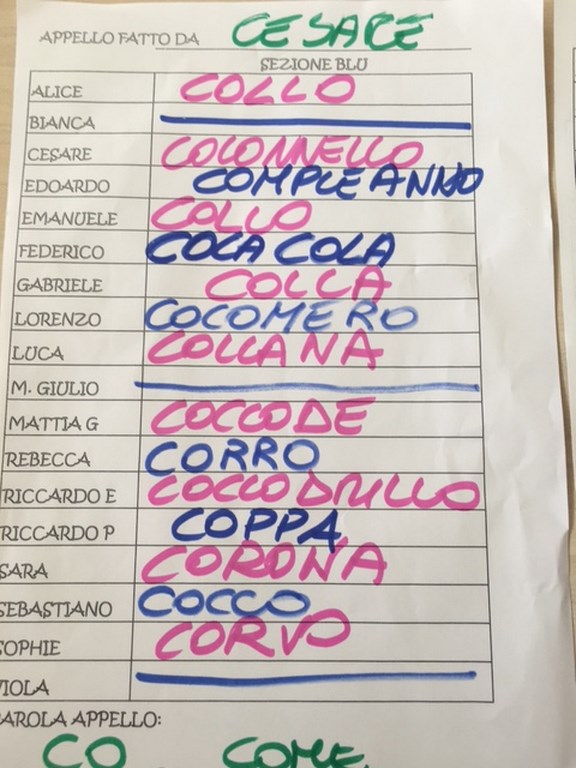 APPELLO FATTO DA CESARE
SEZIONE BLU
ALICE COLLO
BIANCA
CESARE COLONNELLO
EDOARDO COMPLEANNO
EMANUELE COLLO
FEDERICO COCA COLA
GABRIELE COLLA
LORENZO COCOMERO
LUCA COLLANA
M. GIULIO
MATTIA G COCCODE
REBECCA CORRO
RICCARDO E COCCODRILLO
RICCARDO P COPPA
SARA CORONA
SEBASTIANO COCCO
SOPHIE CORVO
VIOLA
PAROLA APPELLO:
CO COME